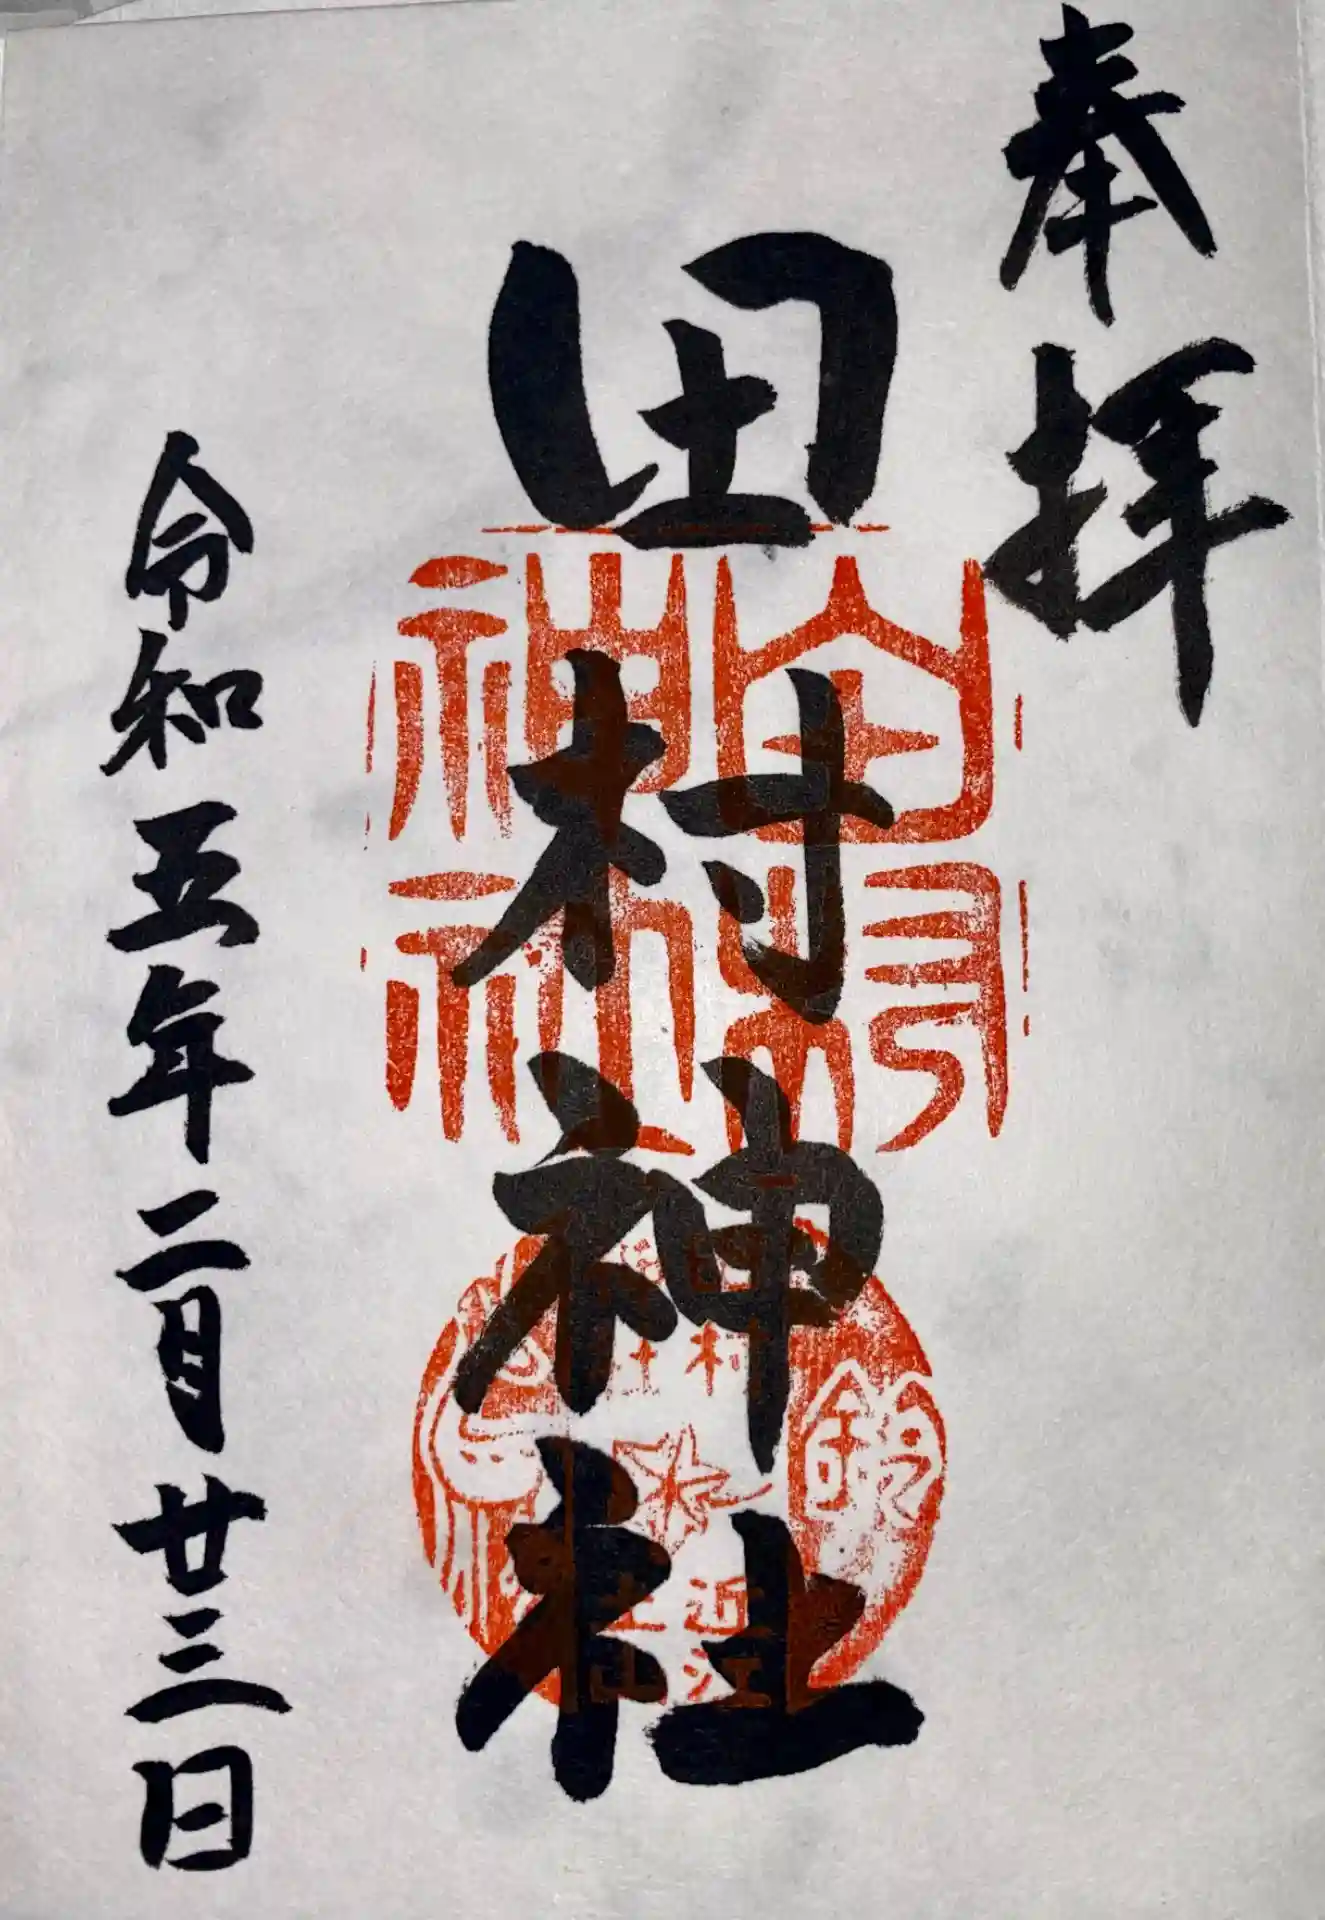 奉拝
田村神社
田村
神社
令和五年二月廿三日
近江
土山